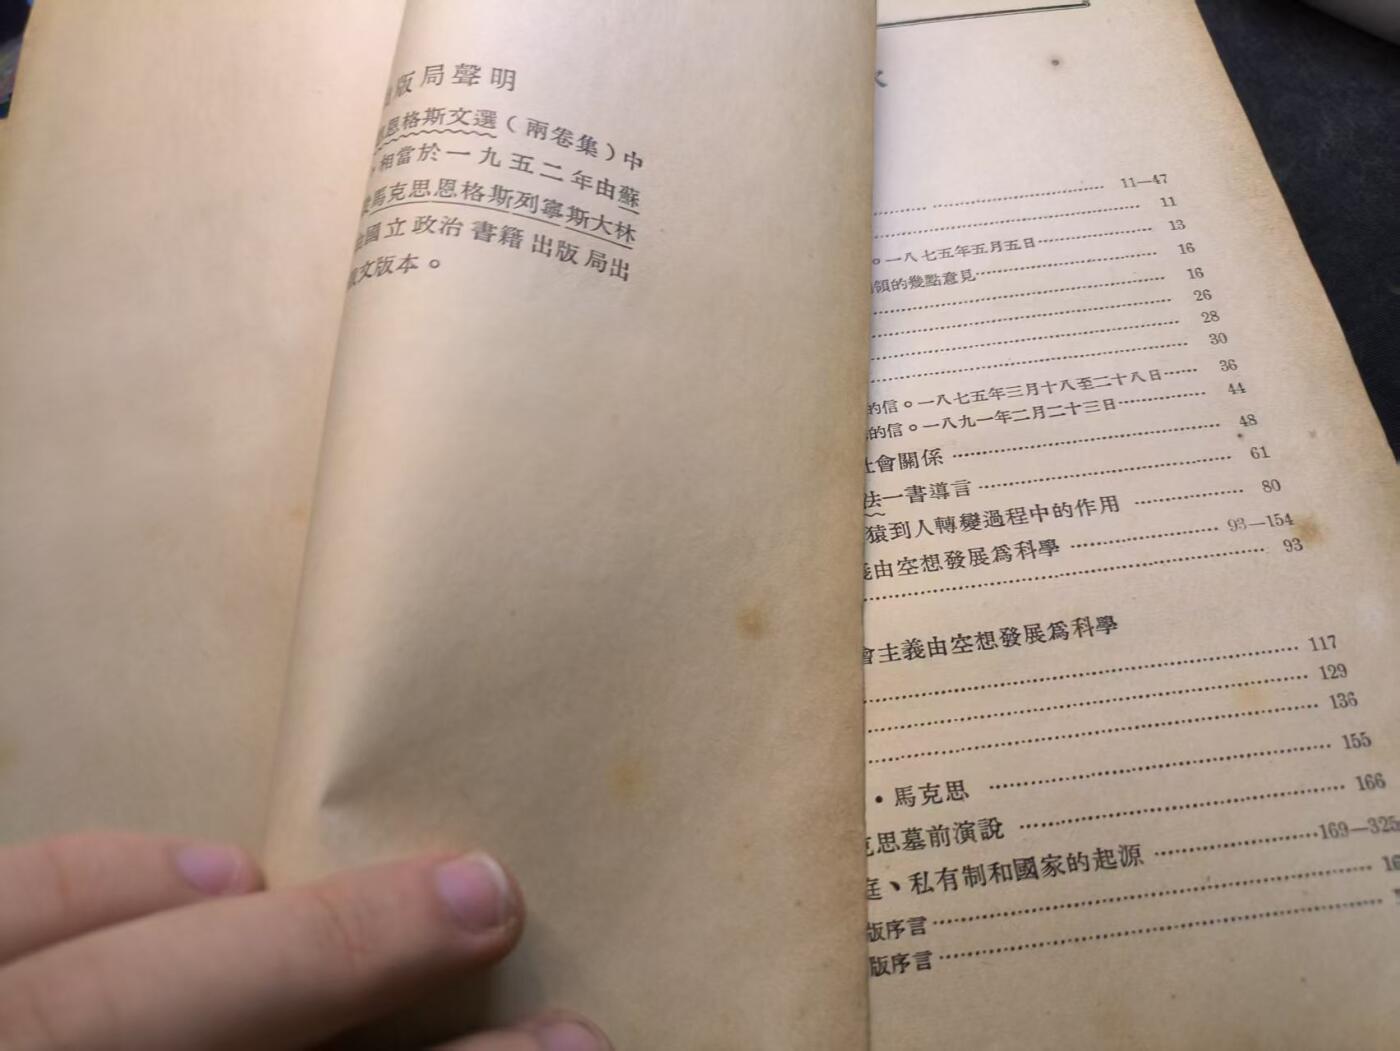 版局聲明
恩格斯文選(兩卷集)中
相當於一九五二年由蘇
馬克思恩格斯列寧斯大林
國立政治書籍出版局出
文版本。
11—47
11
。一八七五年五月五日 13
領的幾點意見 16
16
26
28
30
的信。一八七五年三月十八至二十八日 36
的信。一八九一年二月二十三日 44
社會關係 48
法一書導言 61
猿到人轉變過程中的作用 80
義由空想發展爲科學 93—154
93
會主義由空想發展爲科學
117
129
136
155
·馬克思 166
克思墓前演說 169—325
庭、私有制和國家的起源 16
版序言
版序言